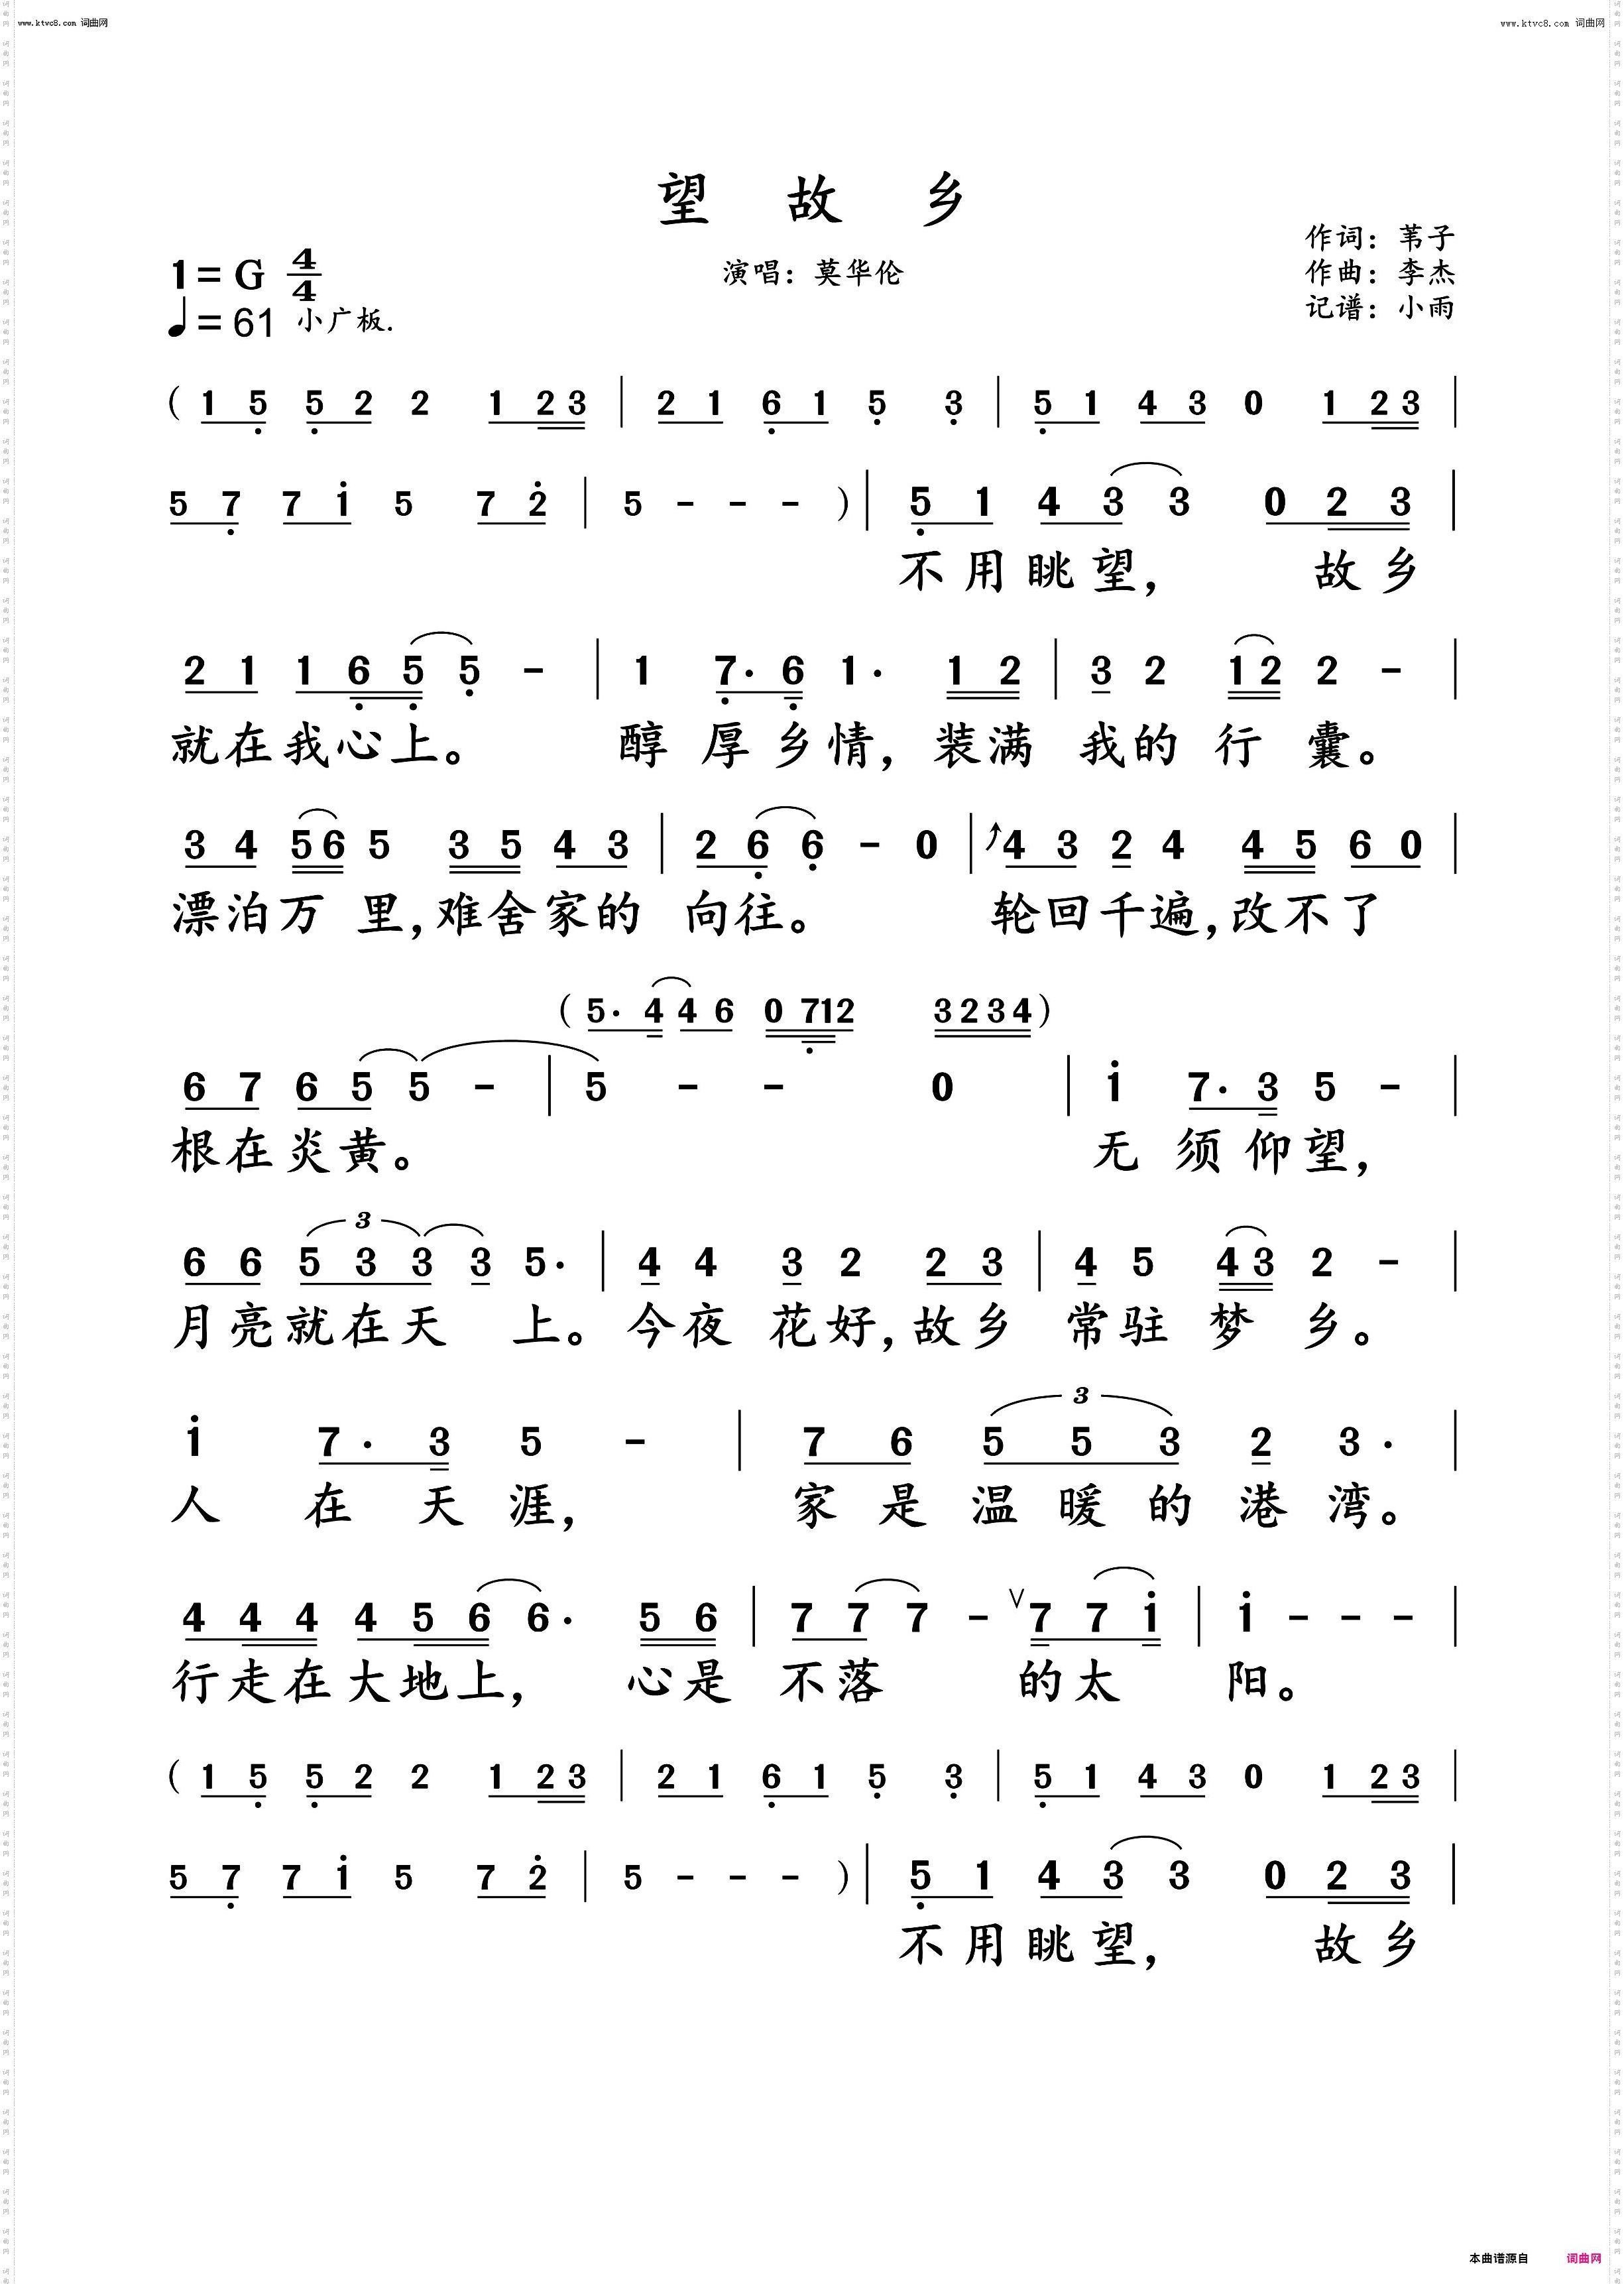 www.ktvc8.com 词曲网 www.ktvc8.com 词曲网
望 故 乡
作词：苇子
1=G 4/4 演唱：莫华伦 作曲：李杰
♩=61 小广板. 记谱：小雨
( 1 5 5 2 2 1 2 3 | 2 1 6 1 5 3 | 5 1 4 3 0 1 2 3 |
5 7 7 i 5 7 2 | 5 - - - ) | 5 1 4 3 3 0 2 3 |
不用眺望， 故乡
2 1 1 6 5 5 - | 1 7. 6 1. 1 2 | 3 2 1 2 2 - |
就在我心上。 醇厚乡情，装满 我的行囊。
3 4 5 6 5 3 5 4 3 | 2 6 6 - 0 | 4 3 2 4 4 5 6 0 |
漂泊万里，难舍家的 向往。 轮回千遍，改不了
( 5. 4 4 6 0 7 1 2 3 2 3 4 )
6 7 6 5 5 - | 5 - - 0 | i 7. 3 5 - |
根在炎黄。 无须仰望，
3
6 6 5 3 3 3 5. | 4 4 3 2 2 3 | 4 5 4 3 2 - |
月亮就在天上。今夜花好，故乡 常驻梦乡。
3
i 7. 3 5 - | 7 6 5 5 3 2 3. |
人在天涯， 家是温暖的港湾。
4 4 4 4 5 6 6. 5 6 | 7 7 7 - V 7 7 i | i - - - |
行走在大地上， 心是 不落 的太 阳。
( 1 5 5 2 2 1 2 3 | 2 1 6 1 5 3 | 5 1 4 3 0 1 2 3 |
5 7 7 i 5 7 2 | 5 - - - ) | 5 1 4 3 3 0 2 3 |
不用眺望， 故乡
本曲谱源自 词曲网